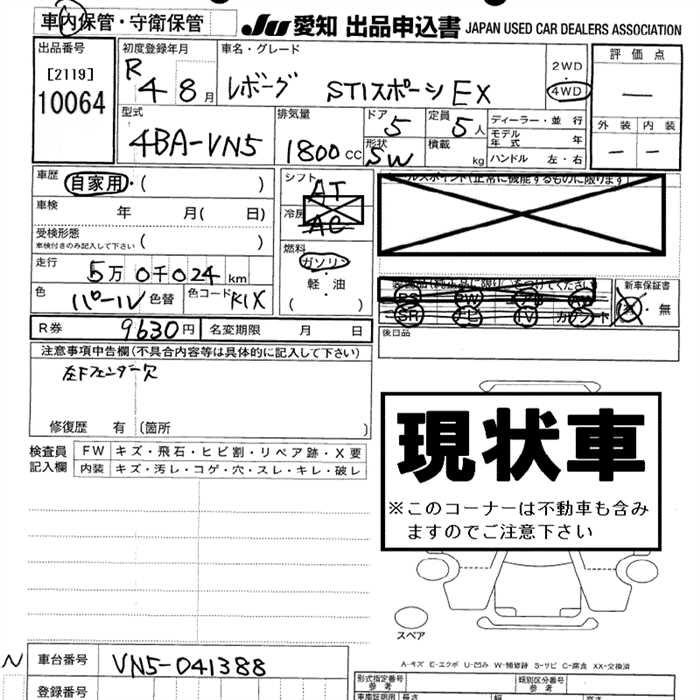 車内保管・守衛保管
JU 愛知 出品申込書 JAPAN USED CAR DEALERS ASSOCIATION
出品番号
[2119]
10064
初度登録年月
R 4 8 月
車名・グレード
レボーグ STIスポーツ EX
2WD
・
4WD
評価点
—
外装 内装
— —
型式
4BA-VN5
排気量
1800 cc
ドア
5
定員
5 人
形状
SW
積載
kg
ディーラー・並行
モデル年式 年
ハンドル 左・右
車歴
自家用・( )
車検 年 月( 日)
受検形態
車検付きのみ記入して下さい ( )
走行 5万0千024 km
色 パール 色替 色コード K1X
シフト
AT
冷房
AC
燃料
ガソリン
・
軽油
( )
(正常に機能するものに限ります)
SR ナビ TV カワシート
新車保証書
有・無
後日品
R券 9630円 名変期限 月 日
注意事項申告欄(不具合内容等は具体的に記入して下さい)
左Fフェンダー穴
修復歴 有 (箇所 )
現状車
※このコーナーは不動車も含み
ますのでご注意下さい
検査員
記入欄
FW キズ・飛石・ヒビ割・リペア跡・X要
内装 キズ・汚レ・コゲ・穴・スレ・キレ・破レ
スペア
A-キズ E-エクボ U-凹み W-補修跡 S-サビ C-腐食 XX-交換済
N 車台番号 VN5-041388
登録番号
型式指定番号
参考
類別区分番号
参考
長さ 幅 高さ